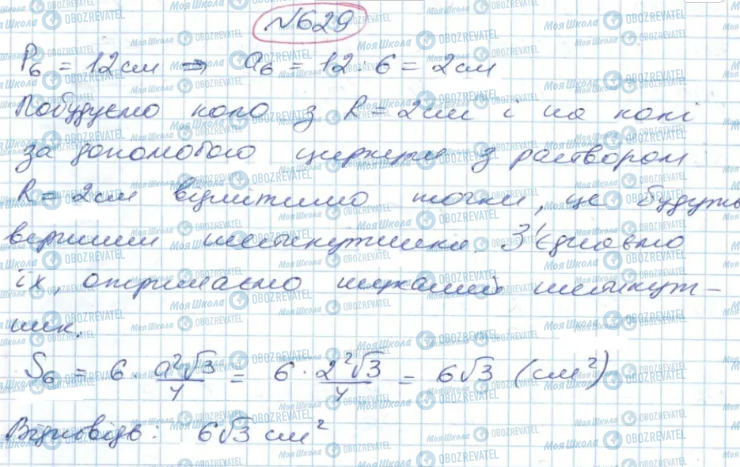 №629
P₆ = 12 см ⇒ a₆ = 12 : 6 = 2 см
Побудуємо коло з R = 2 см і на колі
за допомогою циркуля з раствором
R = 2 см відмітимо точки, це будуть
вершини шестикутника. З'єднаємо
їх, отримаємо шуканий шестикут-
ник.
S₆ = 6 · a²√3/4 = 6 · 2²√3/4 = 6√3 (см²)
Відповідь: 6√3 см²